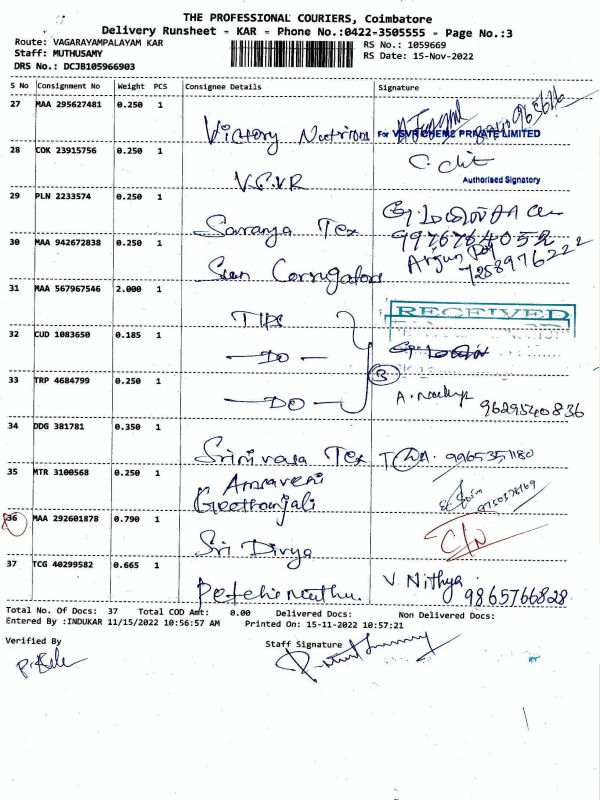 THE PROFESSIONAL COURIERS, Coimbatore
Delivery Runsheet - KAR - Phone No.:0422-3505555 - Page No.:3
Route: VAGARAYAMPALAYAM KAR
RS No.: 1059669
Staff: MUTHUSAMY
RS Date: 15-Nov-2022
DRS No.: DCJB105966903
S No Consignment No Weight PCS Consignee Details Signature
27 MAA 295627481 0.250 1
Victory Nutrions For VSVR CHEMS PRIVATE LIMITED
28 COK 23915756 0.250 1
V.C.V.R Authorised Signatory
29 PLN 2233574 0.250 1
Saranya Tex 9976764052
30 MAA 942672838 0.250 1 Arjun Roy
Sun Corrugators 7258976222
31 MAA 567967546 2.000 1
TIPS RECEIVED
32 CUD 1083650 0.185 1
— DO —
33 TRP 4684799 0.250 1 3
— DO — 9629540836
34 DDG 381781 0.350 1
Srinivasa Tex 9965351180
35 MTR 3100568 0.250 1 Amraveni
Geethanjali
36 MAA 292601878 0.790 1
Sri Divya C/N
37 TCG 40299582 0.665 1
V. Nithya
9865766828
Total No. Of Docs: 37 Total COD Amt: 0.00 Delivered Docs: Non Delivered Docs:
Entered By :INDUKAR 11/15/2022 10:56:57 AM Printed On: 15-11-2022 10:57:21
Verified By Staff Signature